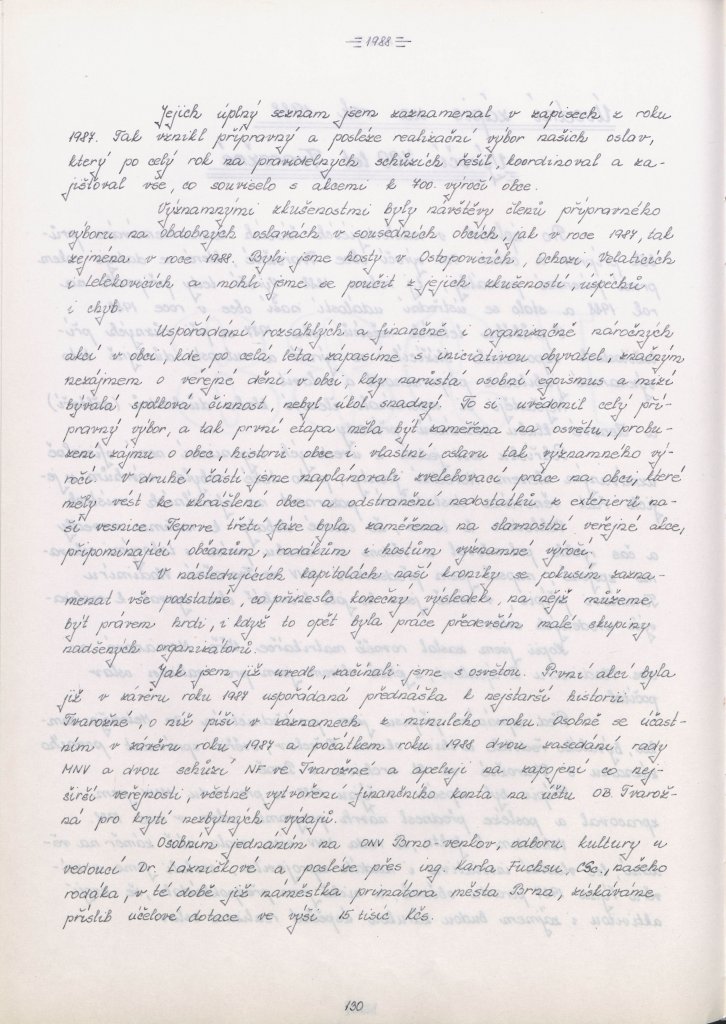 1988
Jejich úplný seznam jsem zaznamenal v zápisech z roku
1987. Tak vznikl přípravný a posléze realizační výbor našich oslav,
který po celý rok na pravidelných schůzích řešil, koordinoval a za-
jišťoval vše, co souviselo s akcemi k 700. výročí obce.
Významnými zkušenostmi byly návštěvy členů přípravného
výboru na obdobných oslavách v sousedních obcích, jak v roce 1987, tak
zejména v roce 1988. Byli jsme hosty v Ostopovicích, Ochozi, Velaticích
i Lelekovicích a mohli jsme se poučit z jejich zkušeností, úspěchů
i chyb.
Uspořádání rozsáhlých a finančně i organizačně náročných
akcí v obci, kde po celá léta zápasíme s iniciativou obyvatel, značným
nezájmem o veřejné dění v obci, kdy narůstá osobní egoismus a mizí
bývalá spolková činnost, nebyl úkol snadný. To si uvědomil celý pří-
pravný výbor, a tak první etapa měla být zaměřena na osvětu, probu-
zení zájmu o obec, historii obce i vlastní oslavu tak významného vý-
ročí. V druhé části jsme naplánovali zvelebovací práce na obci, které
měly vést ke zkrášlení obce a odstranění nedostatků z exteriérů na-
ší vesnice. Teprve třetí fáze byla zaměřena na slavnostní veřejné akce,
připomínající občanům, rodákům i hostům významné výročí.
V následujících kapitolách naší kroniky se pokusím zazna-
menat vše podstatné, co přineslo konečný výsledek, na nějž můžeme
být právem hrdi, i když to opět byla práce především malé skupiny
nadšených organizátorů.
Jak jsem již uvedl, začínali jsme s osvětou. První akcí byla
již v závěru roku 1987 uspořádaná přednáška k nejstarší historii
Tvarožné, o níž píši v záznamech z minulého roku. Osobně se účast-
ním v závěru roku 1987 a počátkem roku 1988 dvou zasedání rady
MNV a dvou schůzí NF ve Tvarožné a apeluji na zapojení co nej-
širší veřejnosti, včetně vytvoření finančního konta na účtu OB Tvarož-
ná pro krytí nezbytných výdajů.
Osobním jednáním na ONV Brno-venkov, odboru kultury u
vedoucí Dr. Lázničkové a posléze přes ing. Karla Fuchsu, CSc., našeho
rodáka, v té době již náměstka primátora města Brna, získáváme
příslib účelové dotace ve výši 15 tisíc Kčs.
130